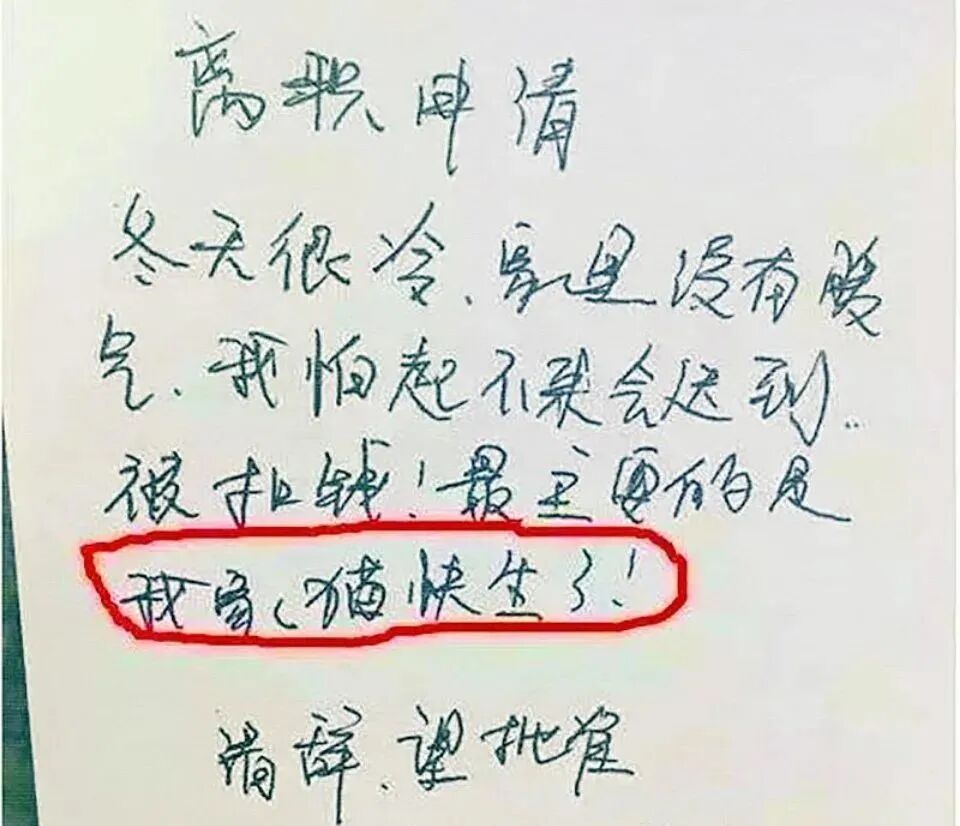 离职申请
冬天很冷、家里没有暖
气、我怕起不来会迟到..
被扣钱!最主要的是
我家心猫快生了!
请辞、望批准